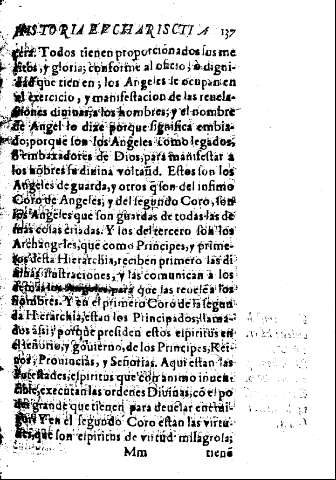 HISTORIA EUCHARISCTIA 137
cera. Todos tienen proporcionados sus me
ritos, y gloria, conforme al oficio, o digni-
dad que tienen; los Angeles se ocupan en
el exercicio, y manifestacion de las revela-
ciones divinas, a los hombres; y el nombre
de Angel lo dize porque significa embia-
do, porque son los Angeles como legados,
o embaxadores de Dios, para manifestar a
los hõbres su divina volũtad. Estos son los
Angeles de guarda, y otros q̃ son del infimo
Coro de Angeles, y del segundo Coro, son
los Angeles que son guardas de todas las de
mas cosas criadas. Y los del tercero son los
Archangeles, que como Principes, y prime-
ros desta Hierarchia, reciben primero las di
vinas ilustraciones, y las comunican a los
demas los Angeles, para que las revelen los
hombres. Y en el primero Coro de la segun
da Hierarchia, estan los Principados, llama-
dos assi, porque presiden estos espiritus en
el señorio, y gouierno, de los Principes, Rei-
nos, Prouincias, y Señorias. Aqui estan las
Potestades, espiritus que con animo inuen-
cible, executan las ordenes Divinas, cõ el po
der grande que tienen para develar enemi-
gos. Y en el segundo Coro estan las virtu-
des, que son espiritus de virtud milagrosa;
Mm tiene